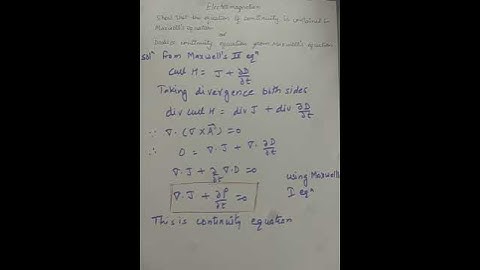 Electromagnetism
Show that the equation of continuity is contained in
Maxwell's equation
or
Deduce continuity equation from Maxwell's equations
Solⁿ from Maxwell's IV eqⁿ
curl H = J + ∂D/∂t
Taking divergence both sides
div curl H = div J + div ∂D/∂t
∵ ∇·(∇×A⃗)=0
∴ 0 = ∇·J + ∇·∂D/∂t
∇·J + ∂/∂t ∇·D = 0
using Maxwell's
I eqⁿ
∇·J + ∂ρ/∂t = 0
This is continuity equation